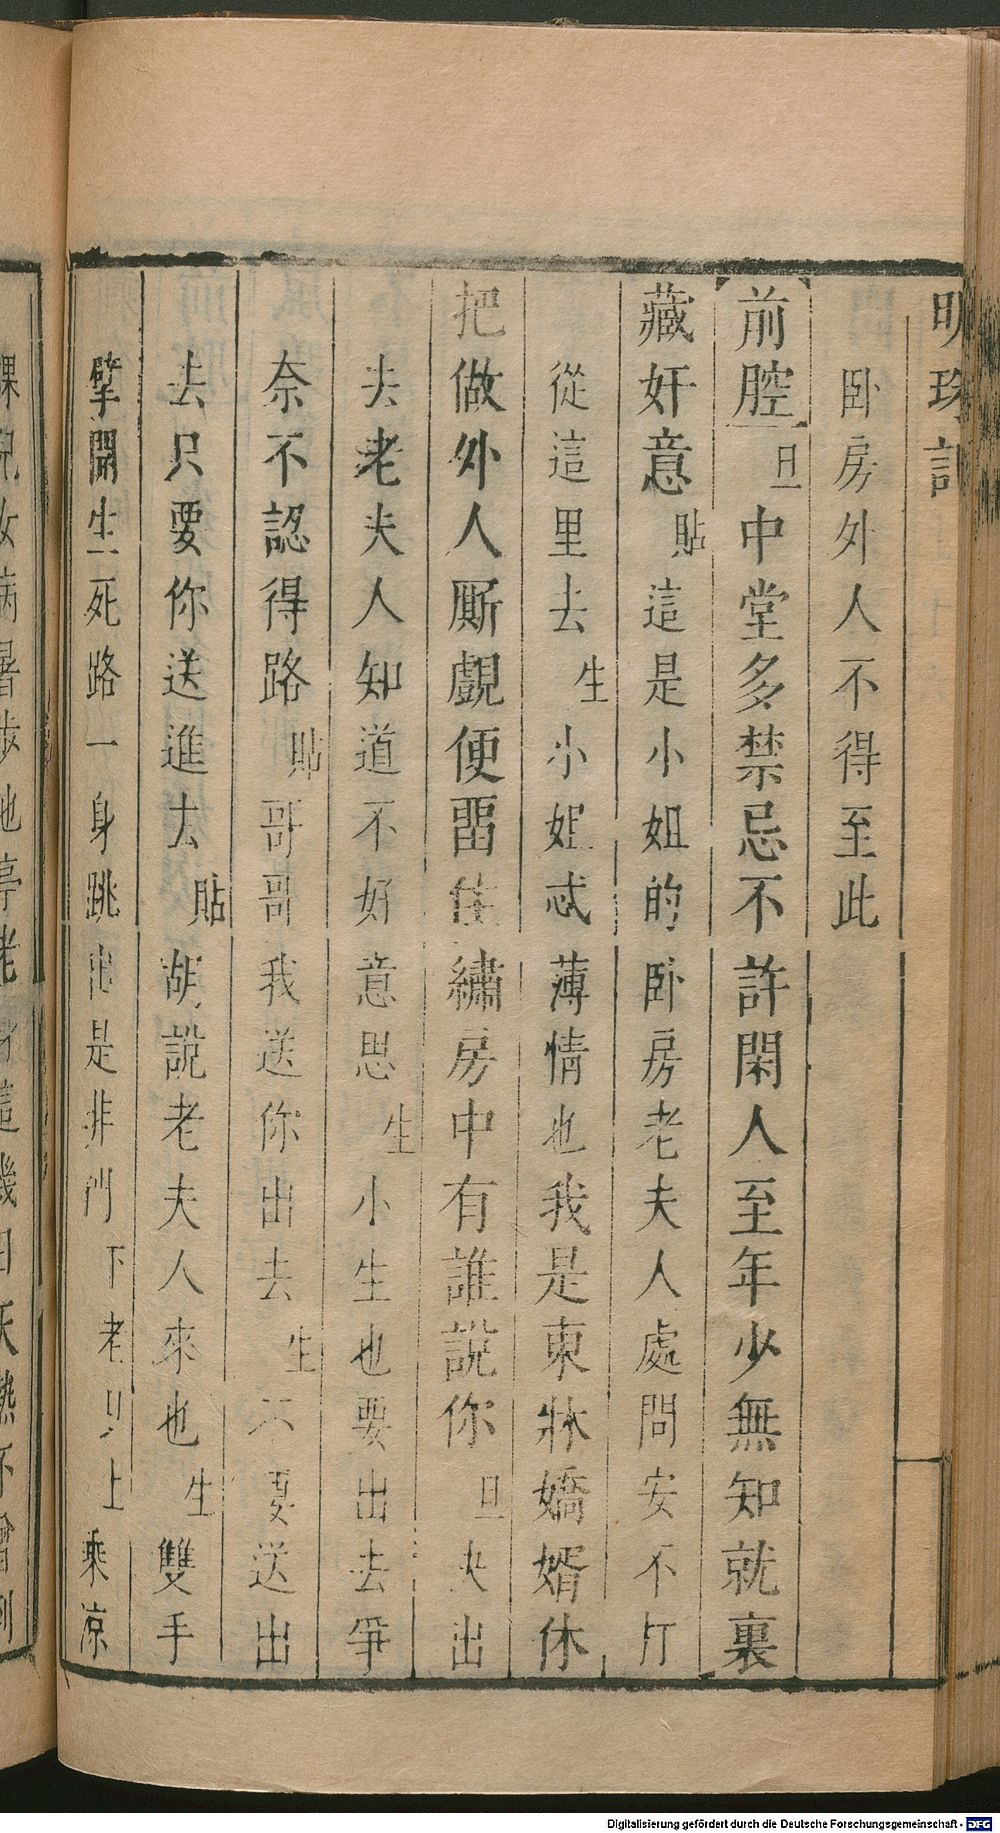 明珠記
卧房外人不得至此
前腔旦中堂多禁忌不許閑人至年少無知就裏
藏奸意貼這是小姐的卧房老夫人處問安不打
從這里去生小姐忒薄情也我是東牀嬌婿休
把做外人厮覷便畱住繡房中有誰說你旦快出
去老夫人知道不好意思生小生也要出去爭
奈不認得路貼哥哥我送你出去生不要送出
去只要你送進去貼胡說老夫人來也生雙手
擘開生死路一身跳出是非門下老旦上乘凉
課兒女病暑步池亭老身這幾日天熱不曾到
Digitalisierung gefördert durch die Deutsche Forschungsgemeinschaft - DFG